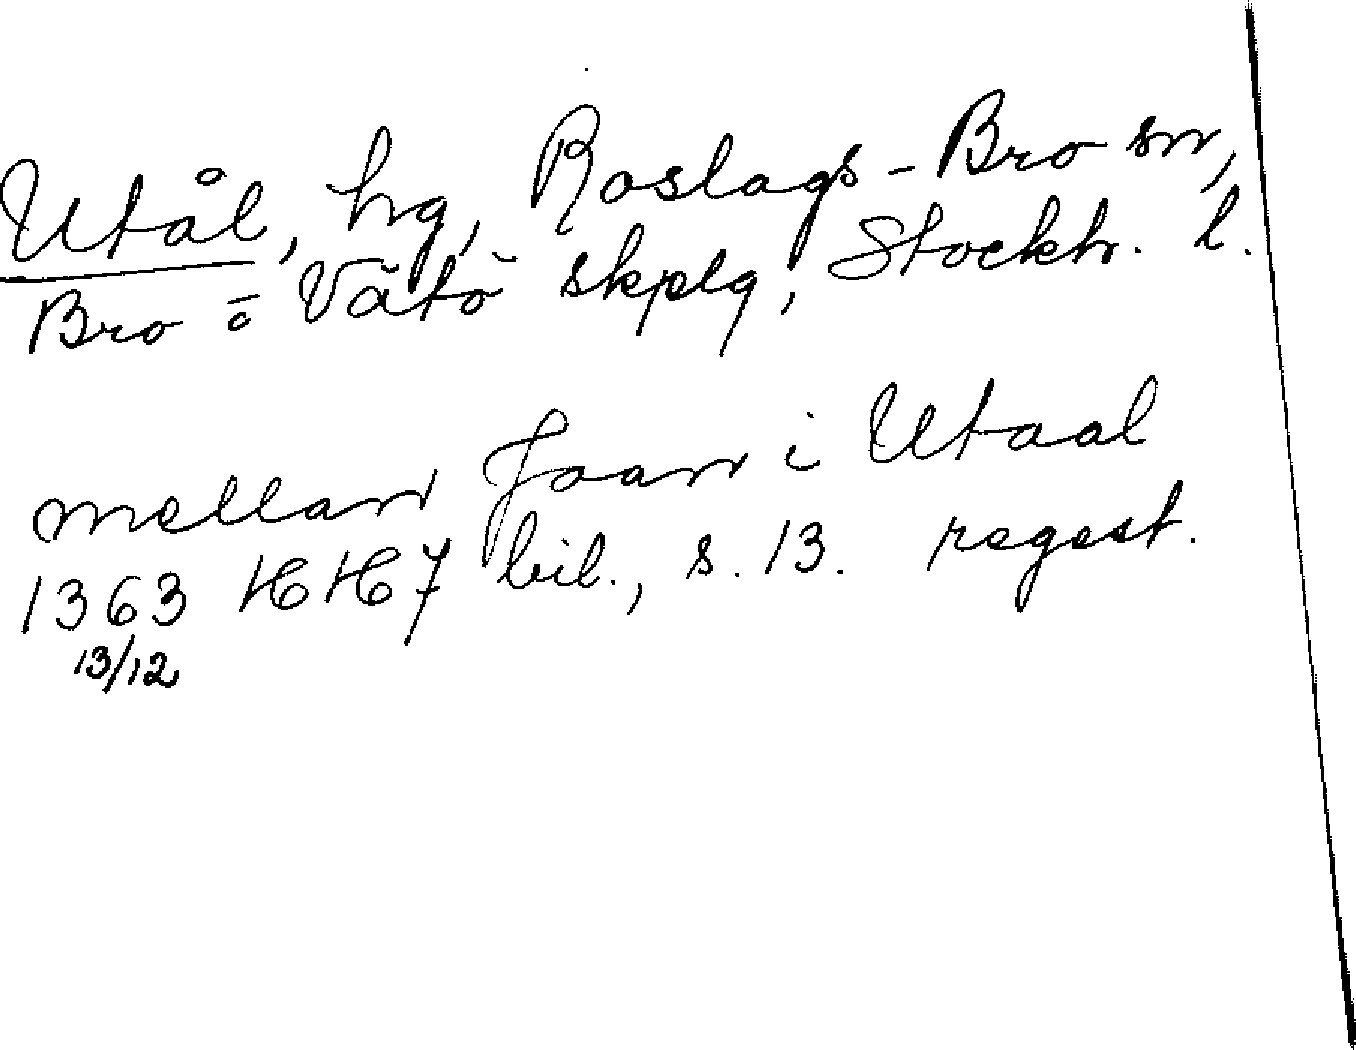 Utål, hg, Roslags-Bro sn,
Bro o Vätö skplg, Stockh. l.
mellan Joan i Utaal
1363 HH 7 bil., s. 13. regest.
13/12